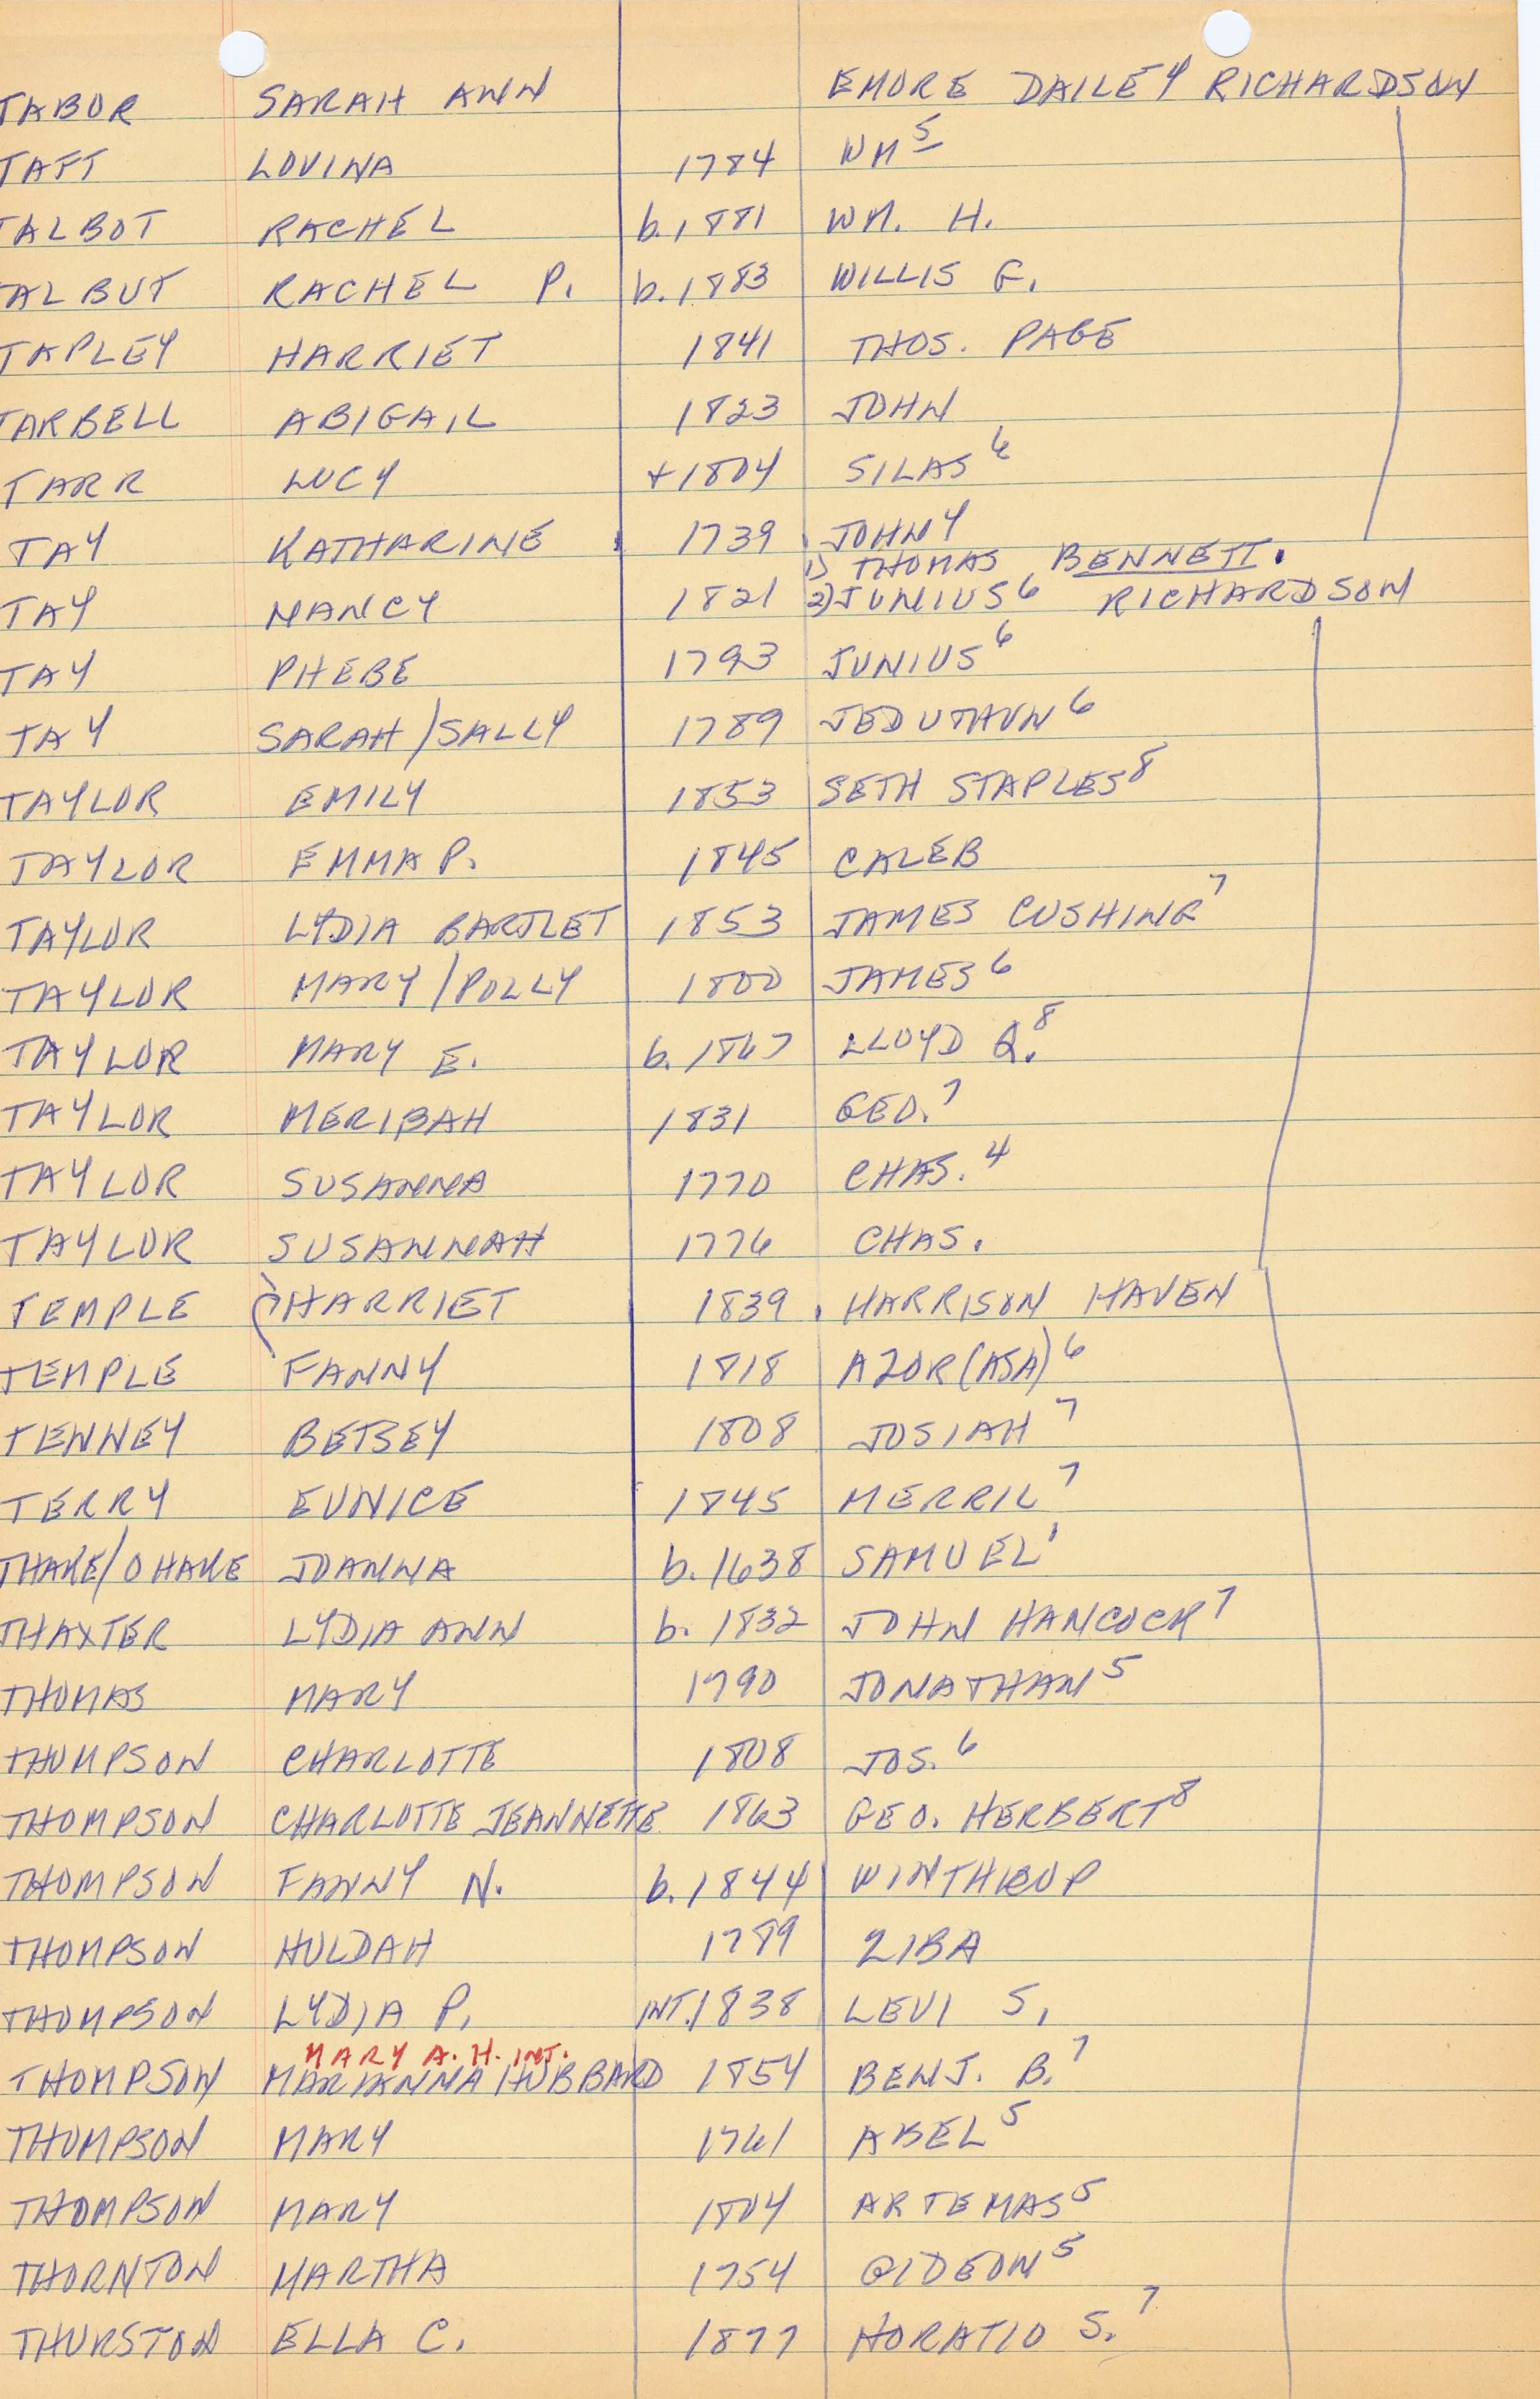 TABOR SARAH ANN EMORE DAILEY RICHARDSON
TAFT LOVINA 1784 WM5
TALBOT RACHEL b. 1881 WM. H.
TALBUT RACHEL P. b. 1883 WILLIS G.
TAPLEY HARRIET 1841 THOS. PAGE
TARBELL ABIGAIL 1823 JOHN
TARR LUCY +1804 SILAS6
TAY KATHARINE 1739 JOHN4
1) THOMAS BENNETT.
TAY NANCY 1821 2) JUNIUS6 RICHARDSON
TAY PHEBE 1793 JUNIUS6
TAY SARAH/SALLY 1789 JEDUTHUN6
TAYLOR EMILY 1853 SETH STAPLES8
TAYLOR EMMA P. 1845 CALEB
TAYLOR LYDIA BARTLET 1853 JAMES CUSHING7
TAYLOR MARY/POLLY 1800 JAMES6
TAYLOR MARY E. b. 1867 LLOYD Q.8
TAYLOR MERIBAH 1831 GEO.7
TAYLOR SUSANNA 1770 CHAS.4
TAYLOR SUSANNAH 1776 CHAS.
TEMPLE HARRIET 1839 HARRISON HAVEN
TEMPLE FANNY 1818 AZOR(ASA)6
TENNEY BETSEY 1808 JOSIAH7
TERRY EUNICE 1845 MERRIL7
THAKE/OHAKE JOANNA b. 1638 SAMUEL1
THAXTER LYDIA ANN b. 1832 JOHN HANCOCK7
THOMAS MARY 1790 JONATHAN5
THOMPSON CHARLOTTE 1808 JOS.6
THOMPSON CHARLOTTE JEANNETTE 1863 GEO. HERBERT8
THOMPSON FANNY N. b. 1844 WINTHROP
THOMPSON HULDAH 1789 ZIBA
THOMPSON LYDIA P. INT. 1838 LEVI S.
MARY A. H. INT.
THOMPSON MARIANNA HUBBARD 1854 BENJ. B.7
THOMPSON MARY 1761 ABEL5
THOMPSON MARY 1804 ARTEMAS5
THORNTON MARTHA 1754 GIDEON5
THURSTON ELLA C. 1877 HORATIO S.7